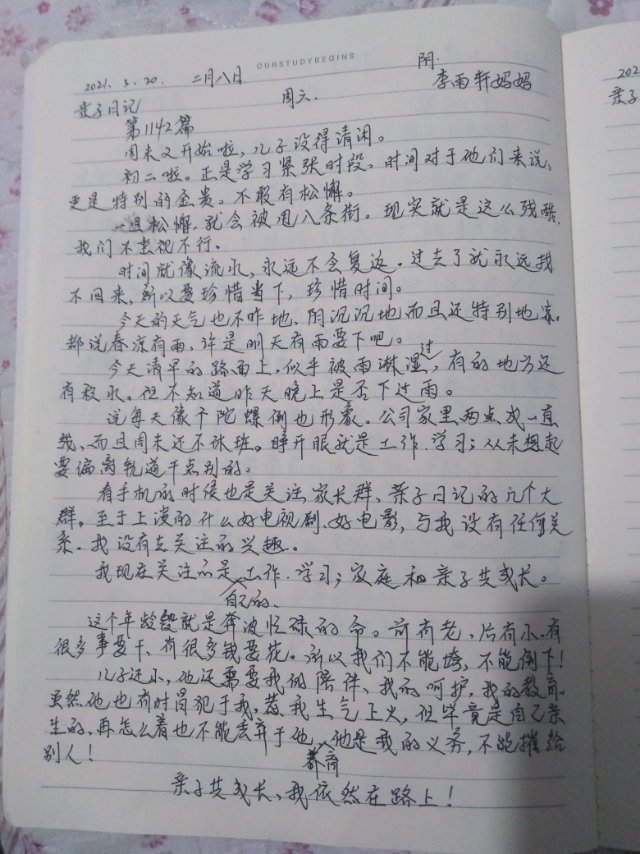 OURSTUDYBEGINS
2021. 3. 20. 二月八日 阴.
亲子日记 周六. 李雨轩妈妈
第1142篇
周末又开始啦，儿子没得清闲。
初二啦。正是学习紧张时段，时间对于他们来说，
更是特别的金贵。不敢有松懈。
一旦松懈，就会被甩八条街。现实就是这么残酷，
我们不重视不行。
时间就像流水，永远不会复返。过去了就永远找
不回来，所以要珍惜当下，珍惜时间。
今天的天气也不咋地，阴沉沉地而且还特别地凉。
都说春凉有雨，许是明天有雨要下吧。
今天清早的路面上，似乎被雨淋湿过，有的地方还
有积水。但不知道昨天晚上是否下过雨。
说每天像个陀螺倒也形象。公司家里两点成一直
线，而且周末还不休班。睁开眼就是工作.学习；从未想起
要偏离轨道干点别的。
看手机的时候也是关注家长群、亲子日记的几个大
群。至于上演的什么好电视剧、好电影，与我没有任何关
系。我没有去关注的兴趣。
我现在关注的是自己的工作.学习；家庭和亲子共成长。
这个年龄段就是奔波忙碌的命。前有老，后有小，有
很多事要干、有很多钱要花。所以我们不能垮，不能倒下！
儿子还小，他还需要我的陪伴、我的呵护，我的教育。
虽然他也有时冒犯于我，惹我生气上火，但毕竟是自己亲
生的，再怎么着也不能丢弃于他，教育他是我的义务，不能推给
别人！
亲子共成长，我依然在路上！
202
亲子